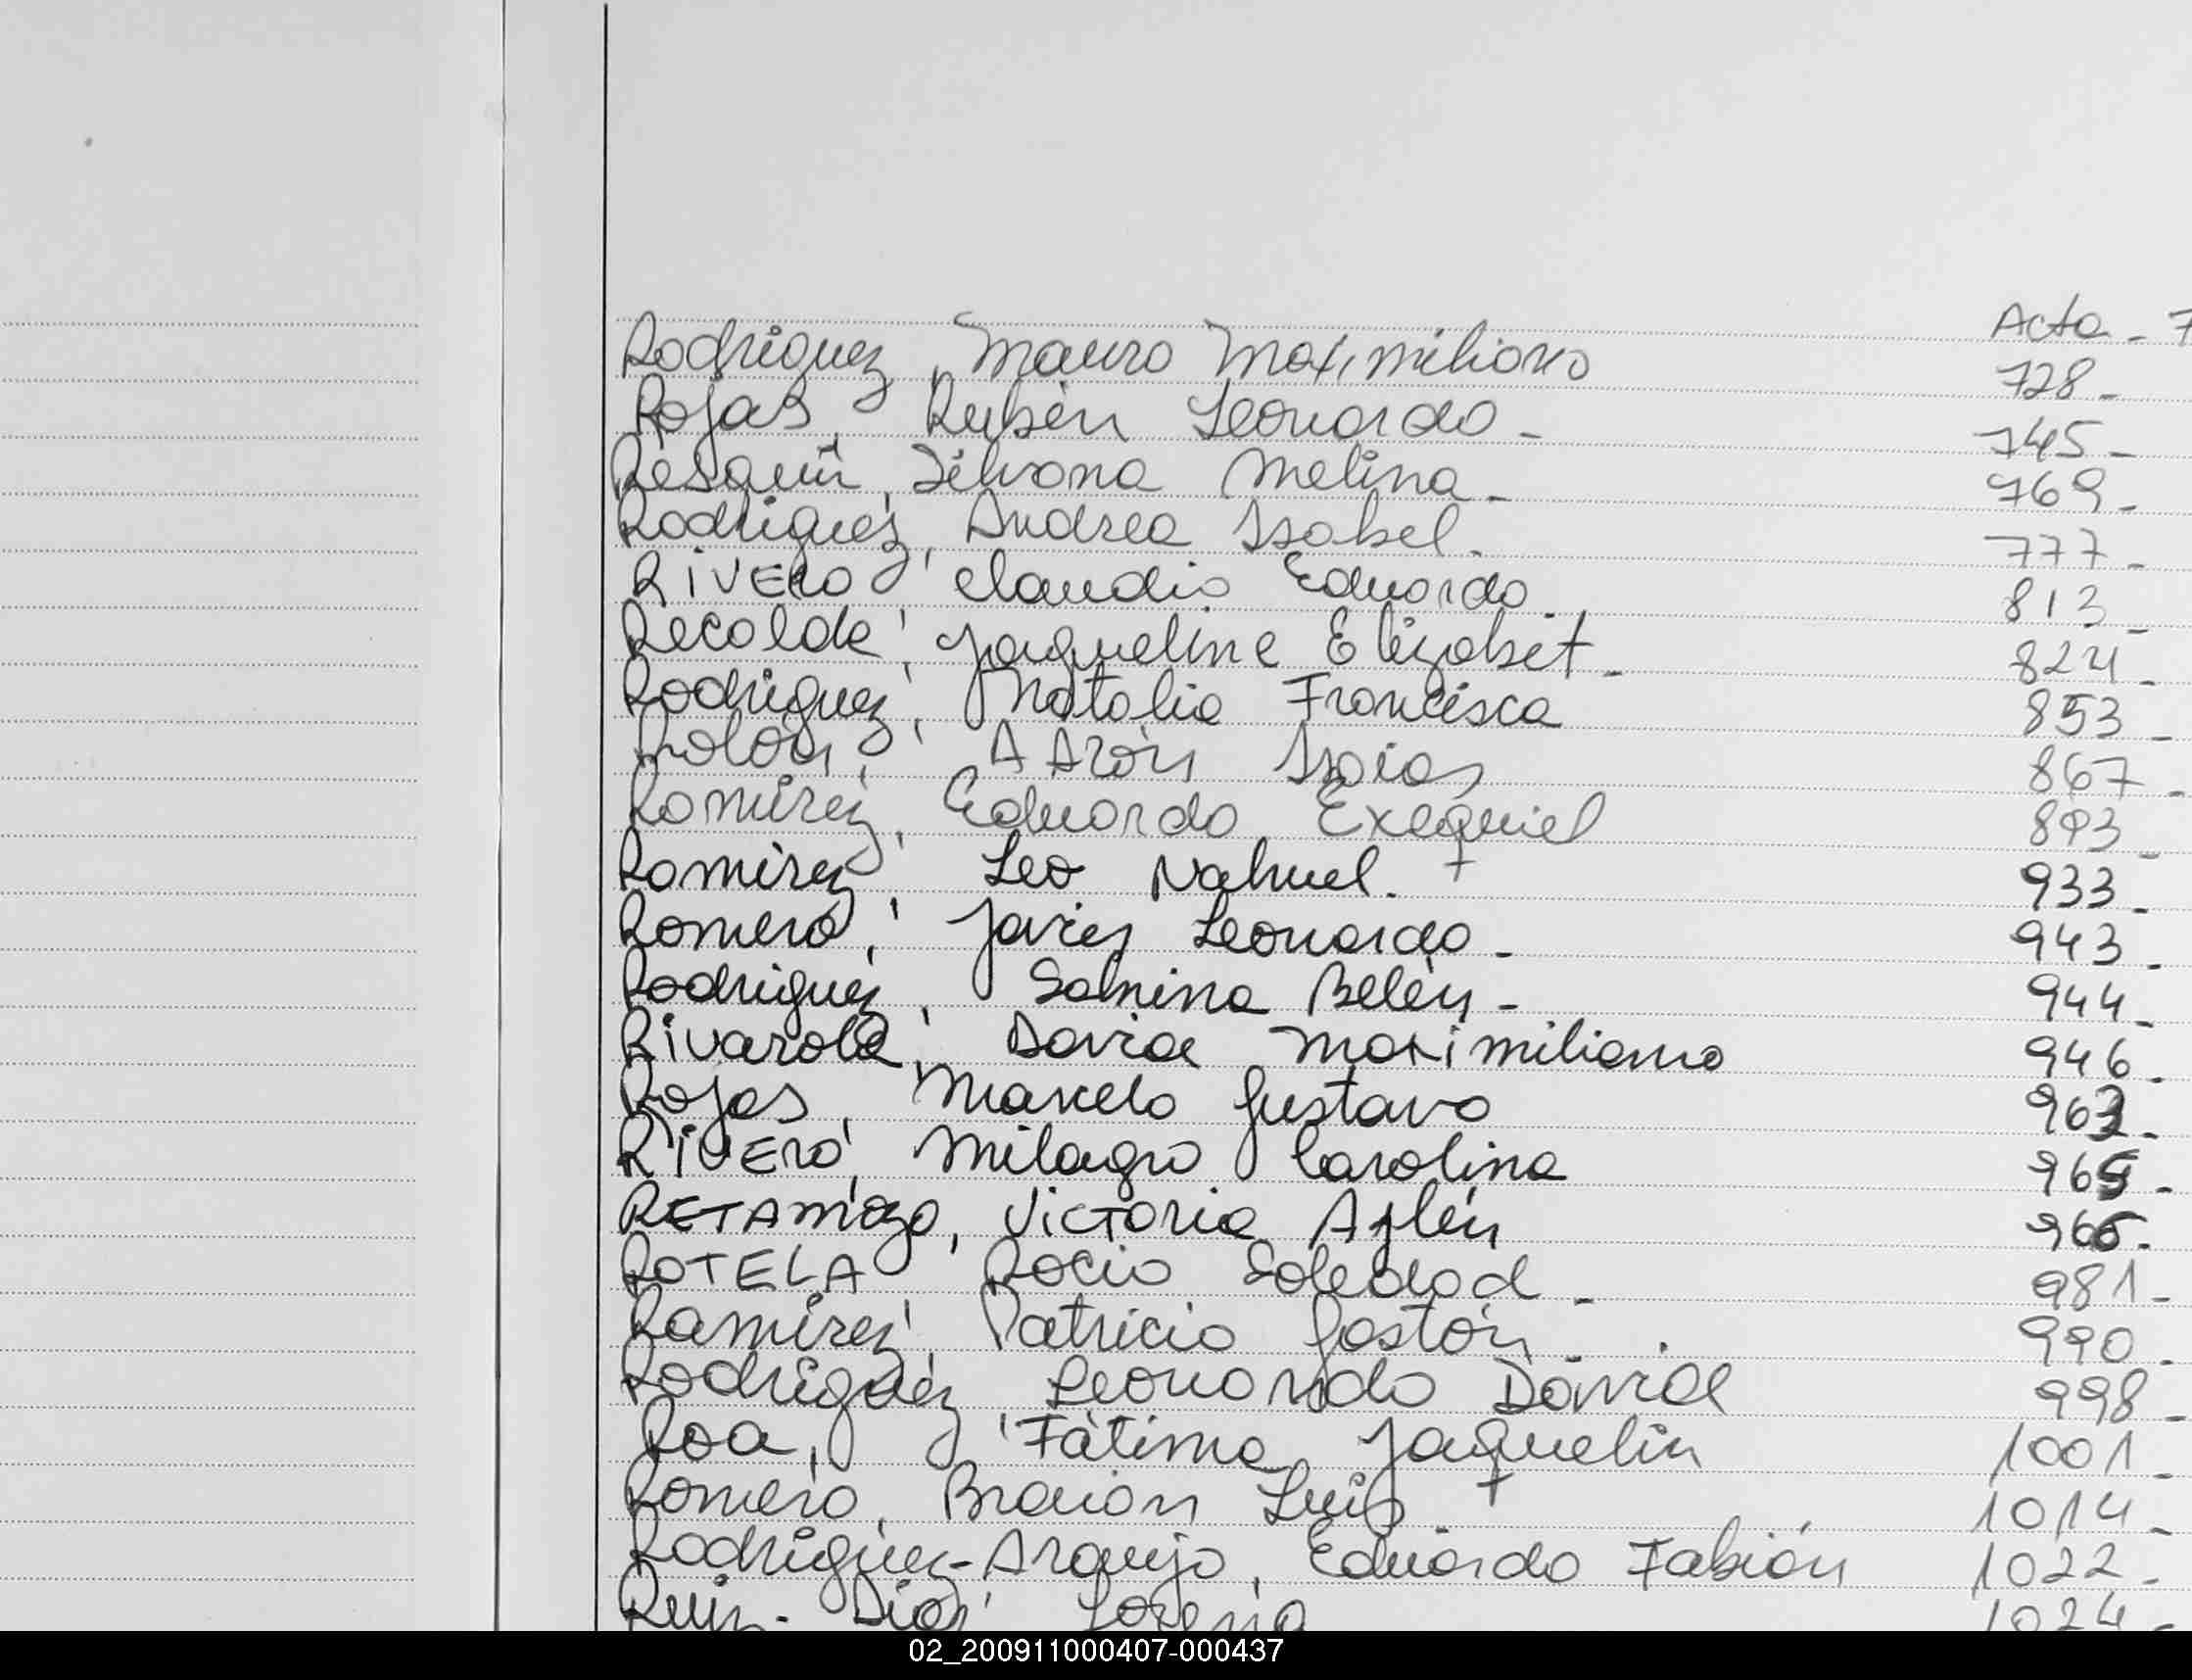 Acto - 7
Rodriguez, Mauro Maximiliano 728 -
Rojas, Rubén Leonardo - 745 -
Resquin, Silvana Melina - 769 -
Rodriguez, Andrea Isabel. 777 -
RIVERO, Claudio Eduardo. 813 -
Recalde, Jaqueline Elizabet - 824 -
Rodriguez, Natalia Francisca 853 -
Rolon, AAròn Isaias 867 -
Ramirez, Eduardo Exequiel 893 -
Ramirez, Leo Nahuel. + 933 -
Romero, Javier Leonardo - 943 -
Rodriguez, Sabrina Belén - 944 -
Rivarola, David Maximiliano 946 -
Rojas, Marcelo Gustavo 963 -
RIVERO, Milagro Carolina 965 -
RETAMOZO, Victoria Aylén 966 -
ROTELA, Rocio Soledad - 981 -
Ramirez, Patricio Gastón - 990 -
Rodriguez, Leonardo David 998 -
Roa, Fátima Jaquelin 1001 -
Romero, Braian Luis + 1014 -
Rodriguez-Araujo, Eduardo Fabián 1022 -
Ruiz - Lorena 1024 -
02_200911000407-000437